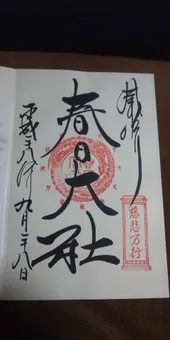 奉拝
慈悲万行
春日大社
平成二十八年九月二十八日